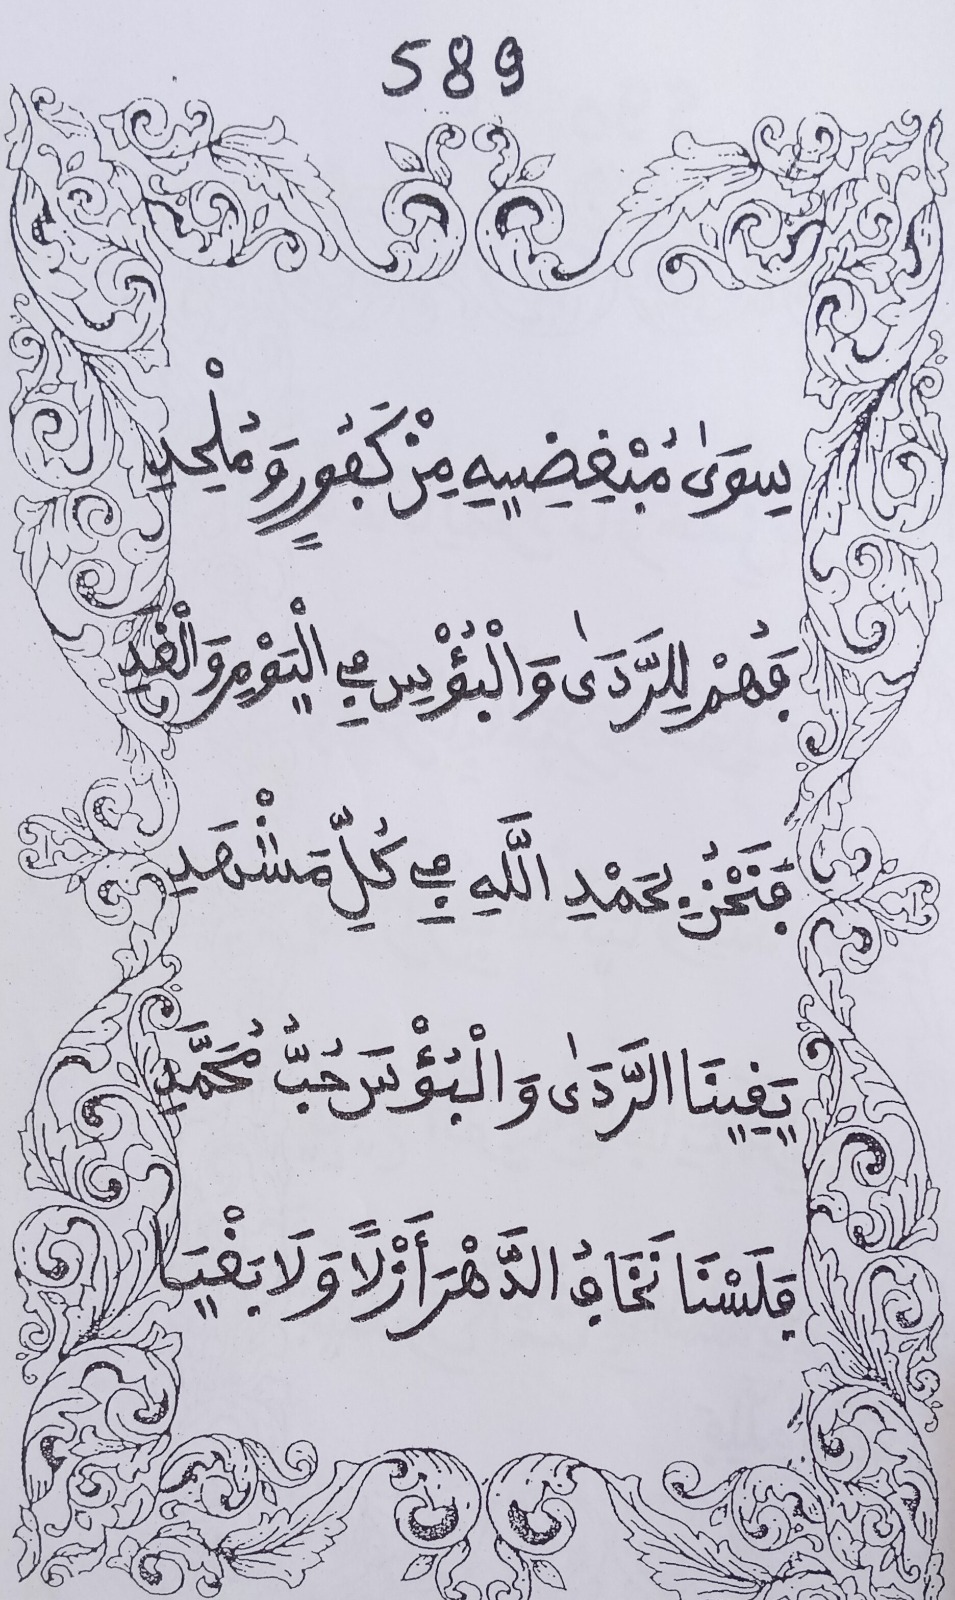 589
سِوَىٰ مُبْغِضِيهِ مِنْ كَفُورٍ وَمُلْحِدِ
فَهُمْ لِلرَّدَىٰ وَالْبُؤْسِ فِي الْيَوْمِ وَالْغَدِ
فَنَحْنُ بِحَمْدِ اللَّهِ فِي كُلِّ مَشْهَدِ
يَقِينَا الرَّدَىٰ وَالْبُؤْسَ حُبُّ مُحَمَّدِ
فَلَسْنَا نَخَافُ الدَّهْرَ أَزْلًا وَلَا بَغْيَا